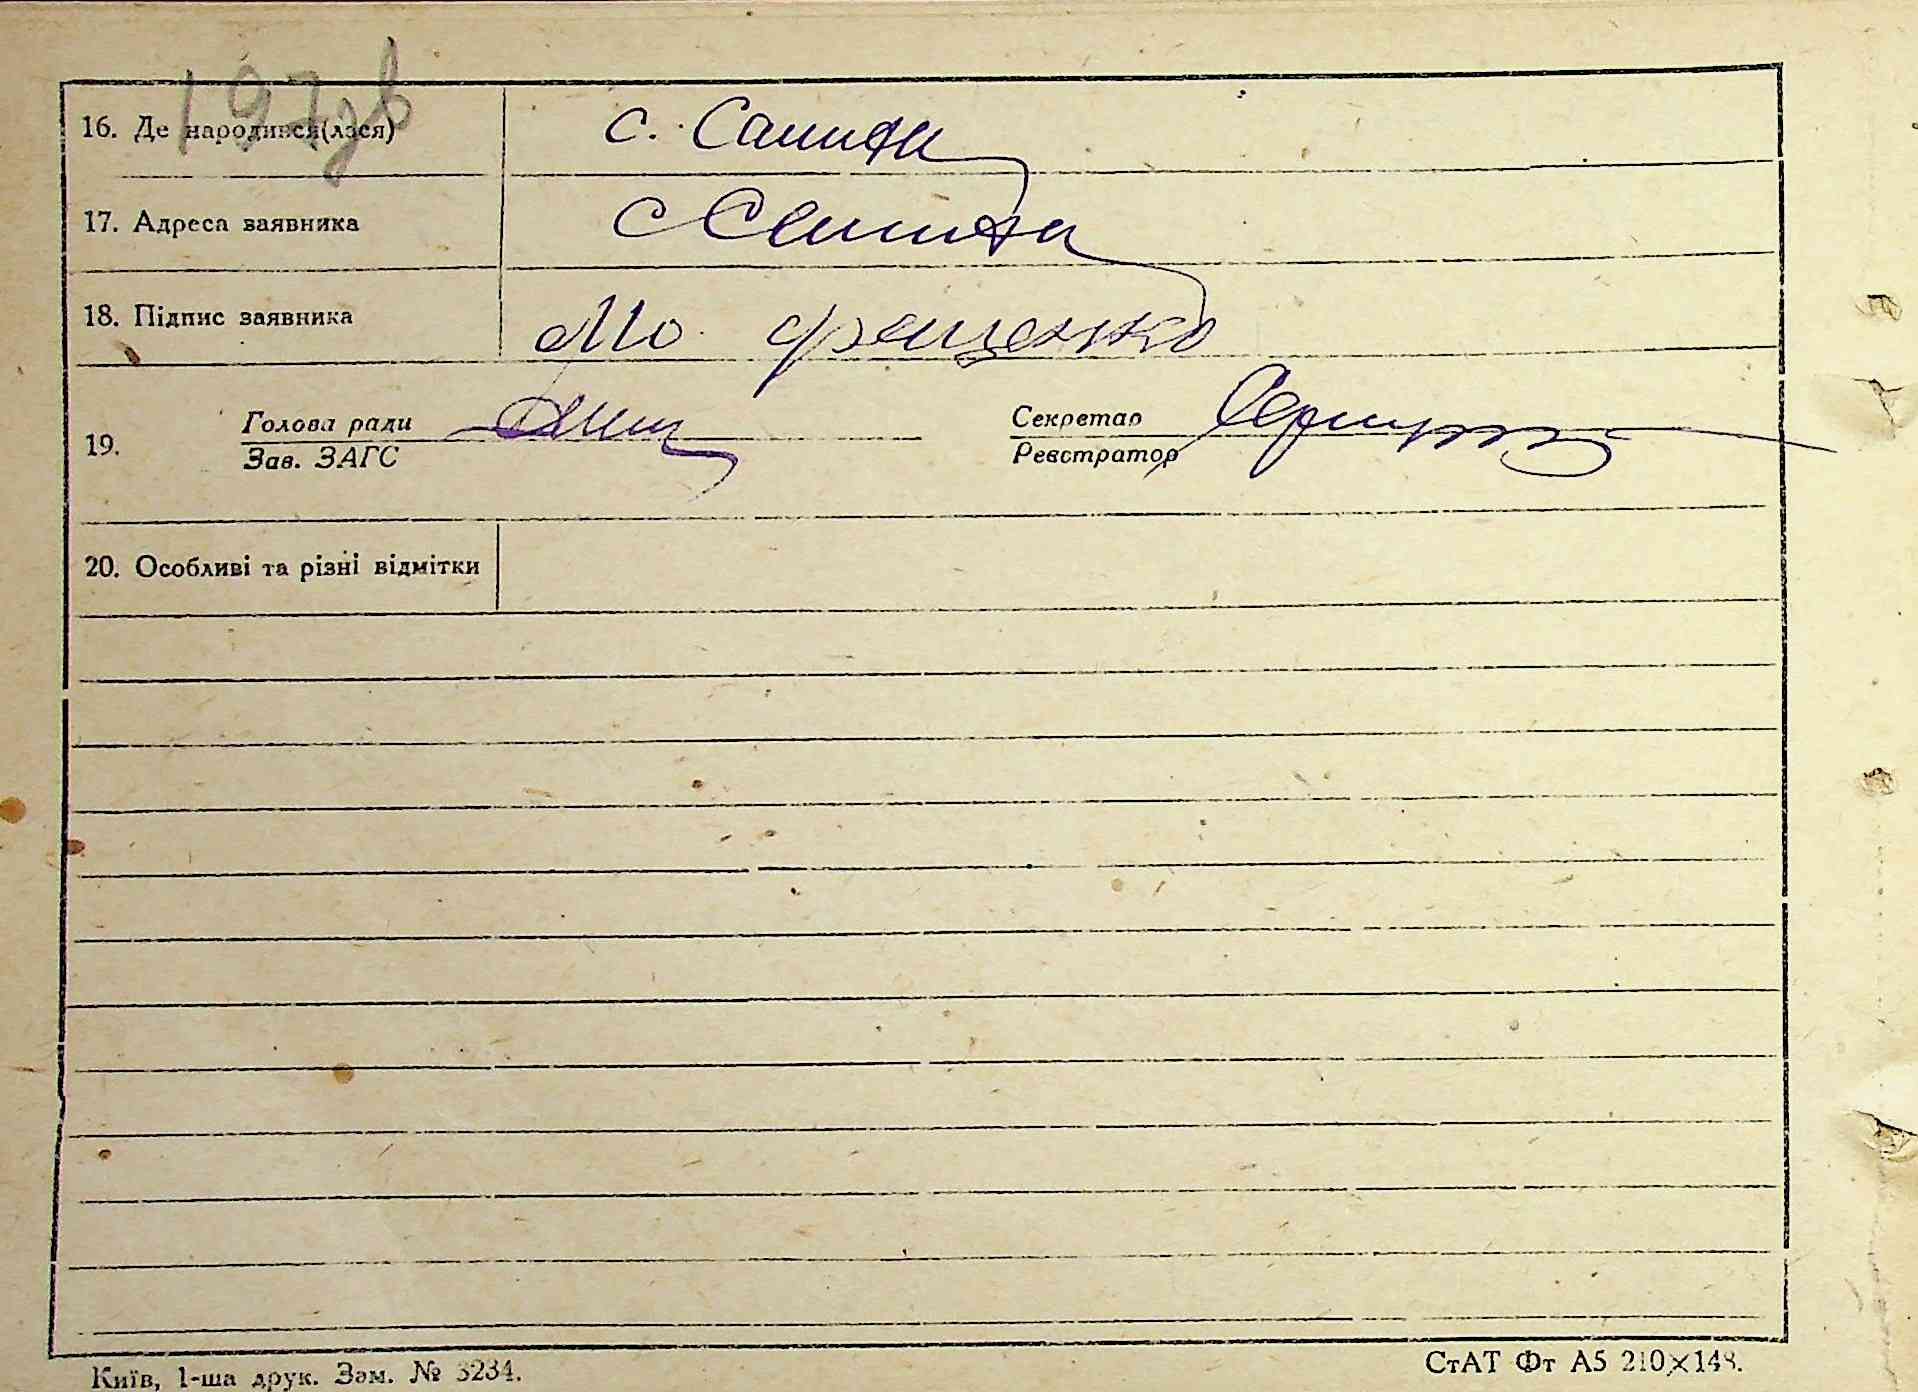 197зв
16. Де народився(лася) с.
17. Адреса заявника с
18. Підпис заявника Фещенко
19. Голова ради Секретар
Зав. ЗАГС Реєстратор
20. Особливі та різні відмітки
Київ, 1-ша друк. Зам. № 3234. СтАТ Фт А5 210×148.